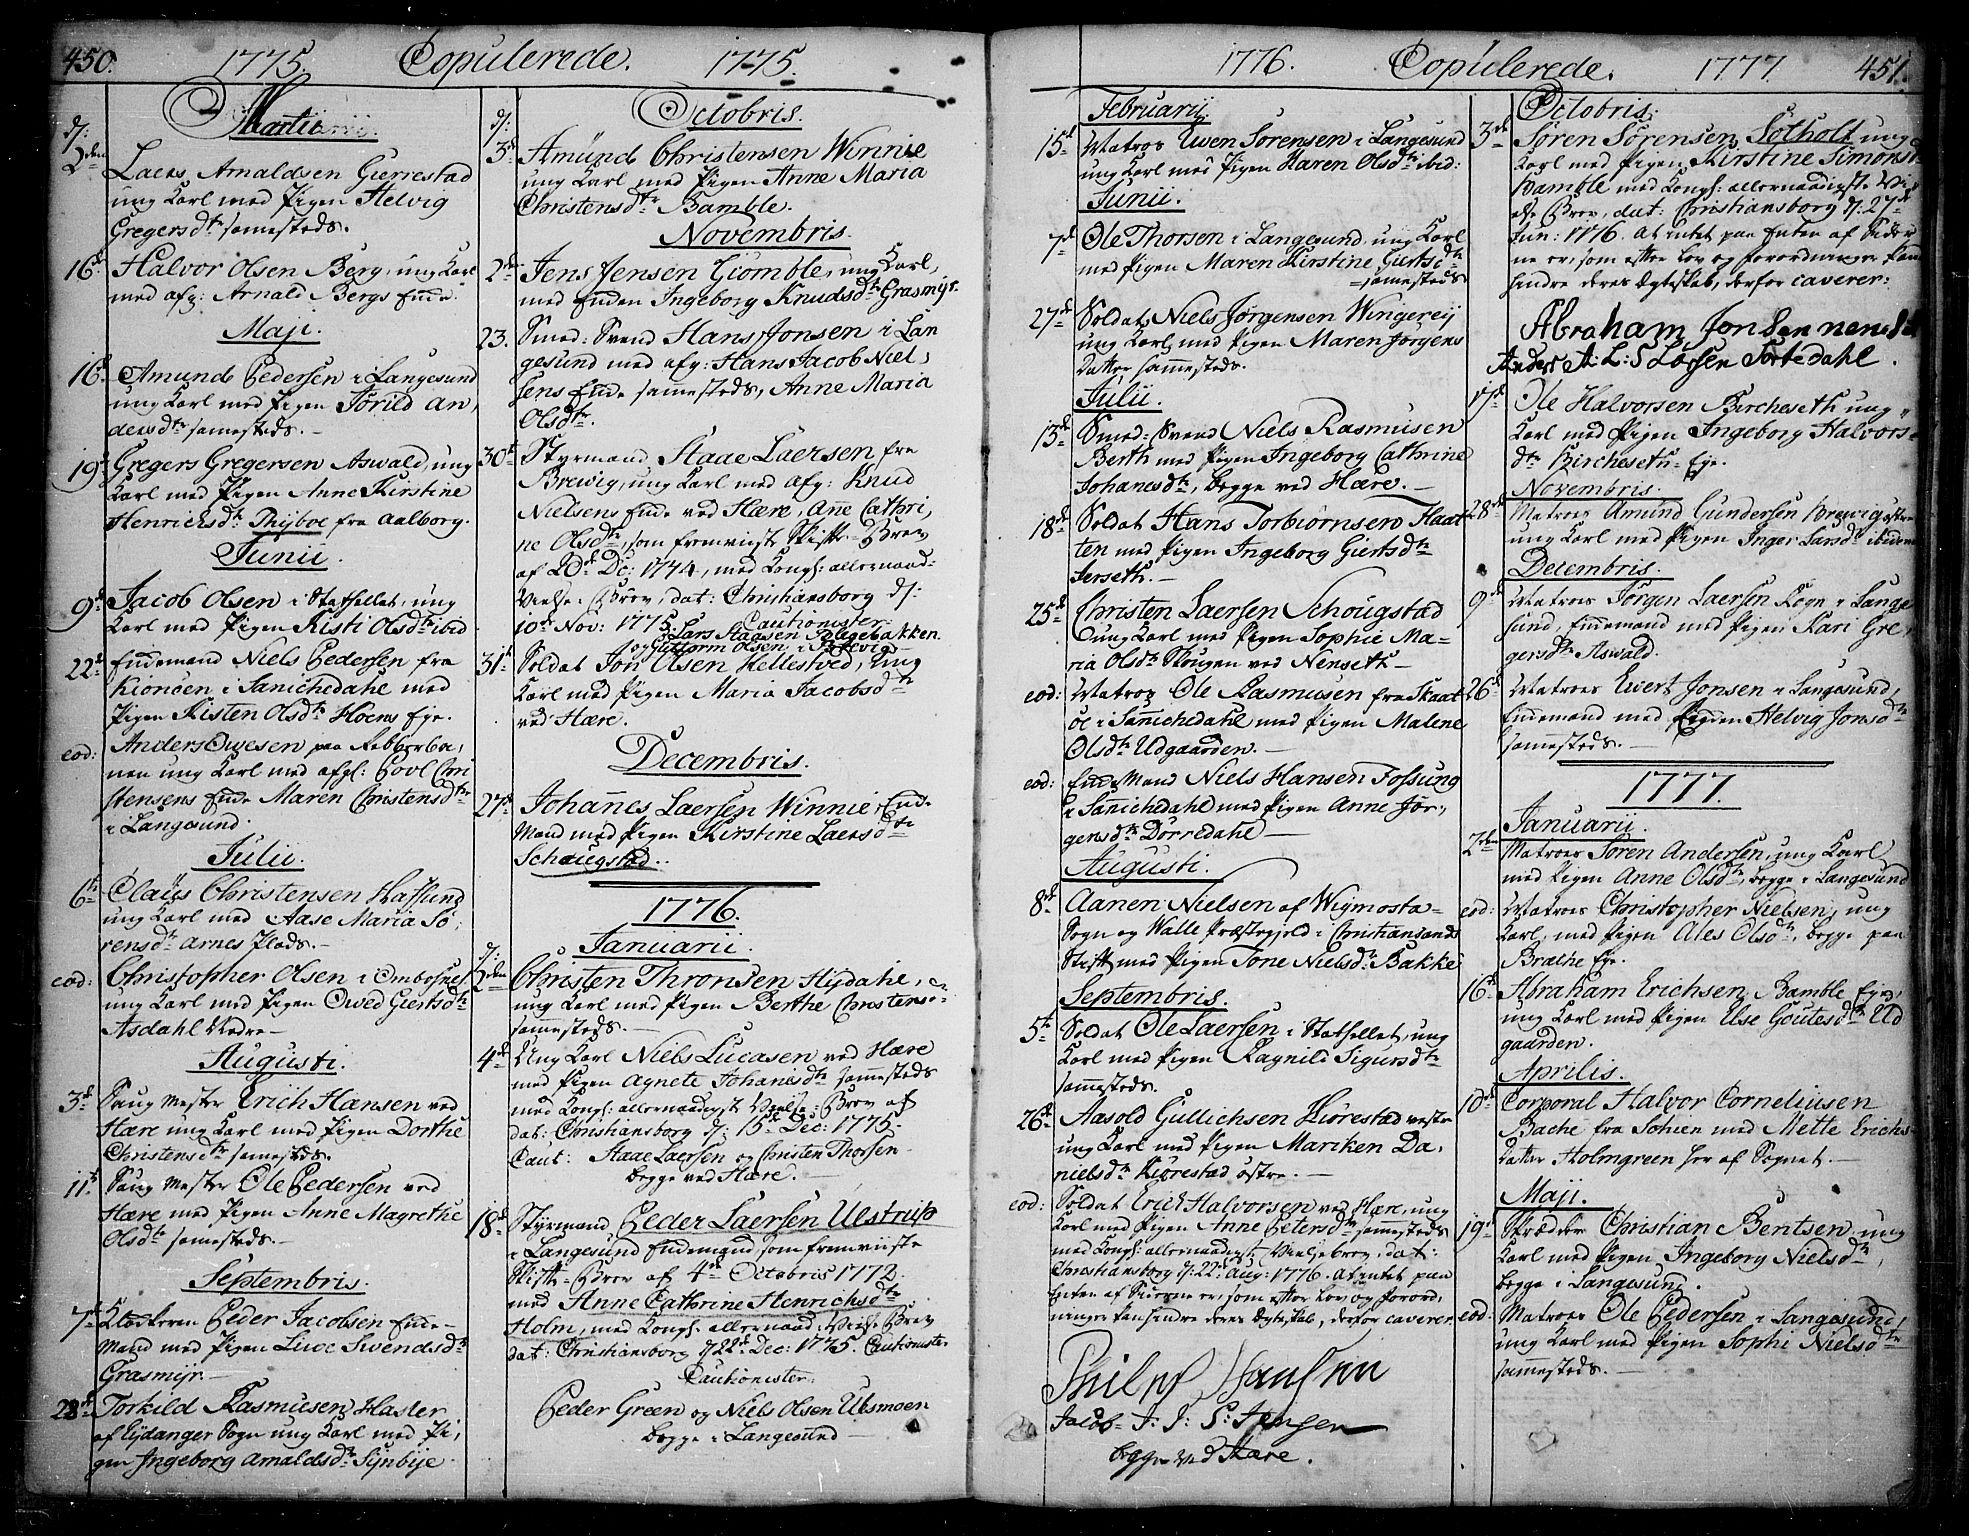 450. 1775. Copulerede. 1775.
Martii.
d:
2den Laers Arnaldsen Gierrestad
ung Karl med Pigen Helvig
Gregersdtr sammesteds.
16d. Halvor Olsen Berg, ung Karl
med afg: Arnald Bergs Enke.
Maji.
16d. Amund Pedersen i Langesund
ung Karl med Pigen Torild An,
dersdtr sammesteds.-
19d Gregers Gregersen Aswald, ung
Karl med Pigen Anne Kirstine
Henrichsdtr Thijboe fra Aalborg.
Junii.
9d. Jacob Olsen i Stathellet, ung
Karl med Pigen Kisti Olsdtr ibid
22d. Enkemand Niels Pedersen fra
Kionöen i Sanichedahl med
Pigen Kisten Olsdtr Hoens Eye.
eod: Anders Owesen paa
nen ung Karl med afgl: Povl Chri
stensens Enke Maren Christensdtr
i Langesund.
Julii.
6te Claüs Christensen Hafsund
ung Karl med Aase Maria Sö,
rensdtr Arnes Plads.-
eod: Christopher Olsen i Ombordsnes
ung Karl med Pigen Owed Giertsdtr
Asdahl Nedre-
Augusti.
3d. Saug Mester Erich Hansen ved
Hære ung Karl med Pigen Dorthe
Christensdtr sammesteds.
11t. Saug Mester Ole Pedersen ved
Hære med Pigen Anne Magrethe
Olsdtr sammesteds.-
Septembris.
7d Klockeren Peder Jacobsen Enke-
Mand med Pigen Live Swendsdtr
Grasmijr-
28d. Torkild Rasmusen Hasler
af Eijdanger Sogn ung Karl med Pi,
gen Ingeborg Arnaldsdtr Sijnbije.
d: Octobris.
3d. Amünd Christensen Winnie
ung Karl med Pigen Anne Maria
Christensdtr Bamble.
Novembris.
2den Jens Jensen Giömble, ung Karl,
med Enken Ingeborg Knudsdtr Grasmijr.
23. Smed-Svend Hans Jonsen i Lan
gesund med afg: Hans Jacob Niel,
sens Enke sammesteds, Anne Maria
Olsdtr.
30t. Styrmand Staae Laersen fra
Brewig, ung Karl med afg: Knud
Nielsens Enke ved Hære, Ane Cathri,
ne Olsdtr, som fremviste Skifte-Brev
af 20d. Dec: 1774, med Kongl: allernaad:
Vielse-Brev, dat: Christiansborg d:
10de Nov: 1775. Cautionister
Lars Staasen Plagebakken.
og Guttorm Olsen i Brevig-
31t. Soldat Jon Olsen Hellestved, ung
Karl med Pigen Maria Jacobsdtr
ved Hære.
Decembris.
27d. Johannes Laersen Winnie, Enke
Mand med Pigen Kirstine Laersdtr
Schougstad.
1776.
Januarii.
d:
2den Christen Thronsen Hijdahl,
ung Karl med Pigen Berthe Christensd.
sammesteds.-
4d. Ung Karl Niels Lucasen ved Hære
med Pigen Agnete Johanisdtr sammesteds
med Kongl: allernaadigst Vielse-Brev af
dat: Christiansborg d: 15de Dec: 1775.
Caut: Staae Laersen og Christen Thorsen
begge ved Hære.-
18d. Styrmand Peder Laersen Ulstrup
i Langesund Enkemand som fremviiste
Skifte-Brev af 4de Octobris 1772
med Anne Cathrine Henrichsdtr
Holm, med Kongl. allernaad: Vielse Brev
dat: Christiansborg d 22d Dec: 1775. Cautionister
Cautionister:
Peder Green og Niels Olsen Ulsmoen
begge i Langesund
1776. Copulerede. 1777 451.
Februarij.
15d. Matros Ewen Sörensen i Langesund
ung Karl med Pigen Karen Olsdtr ibid:
Junii.
7d. Ole Thorsen i Langesund, ung Karl
med Pigen Maren Kirstine Giertsdtr
sammesteds
27de Soldat Niels Jörgensen Wingereij
ung Karl, med Pigen Maren Jörgens
Datter sammesteds.
Julii.
13d. Smed-Svend Niels Rasmusen
Berth med Pigen Ingeborg Cathrine
Johanesdtr, begge ved Hære.-
18d. Soldat Hans Torbiörnsen Flaat
ten med Pigen Ingeborg Giertsdtr
Jerseth.-
25d. Christen Laersen Schougstad
ung Karl med Pigen Sophie Ma-
ria Olsdtr Skougen ved Nenseth-
eod: Matros Ole Rasmusen fra Skaat
öe i Sannichedahl med Pigen Malene
Olsdtr Udgaarden.-
eod: Enke Mand Niels Hansen Fossung
i Sannichedahl med Pigen Anne Jör-
gensdtr Dörredahl
Augusti.
8d. Aanen Nielsen af Wigmostad-
Sogn og Walle Præstegield i Christiansands
Stift med Pigen Tone Nielsdtr Bakke
Septembris.
5te Soldat Ole Laersen i Stathellet, ung
Karl med Pigen Ragnild Sigursdtr
sammesteds.
26d. Aasold Gullichsen Kiörestad vestre
ung Karl med Pigen Mariken Da,
nielsdtr Kiörestad östre.-
eod: Soldat Erich Halvorsen ved Hære, ung
Karl med Pigen Anne Petersdtr sammesteds
med Kongl: allernaadigst Vielse brev, dat:
Christiansborg d: 22d Aug: 1776. At intet paa
Enten af Siderne er, som efter Lov og Forord,
ninger kan hindre deres Egteskab, derfor caverer
Philip Hansen
Jacob J: J: S: Jensen
begge ved Hære.
Octobris.
3d. Sören Sörensen Sotholt ung
Karl med Pigen Kirstine Simonsdtr
Bamble med Kongl: allernaadigste Vi
else Brev, dat: Christiansborg d: 27de
Jun: 1776. At intet paa Enten af Sider
ne er, som efter Lov og Forordninger kan
hindre deres Egteskab, derfor caverer:
Abraham Jonsen
Anders A: L: S Larsen Tortedahl.
17d Ole Halvorsen Bircheseth ung
Karl med Pigen Ingeborg Halvors-
dtr Bircheseth-Eye.
Novembris.
28d. Matros Amund Gundersen Brewig östre
ung Karl med Pigen Inger Larsdtr ibidem
Decembris.
9d Matros Jörgen Laersen Kogn i Lange
sund, Enkemand med Pigen Kari Gre,
gersdtr Aswald.
26d Matros Ewert Jonsen i Langesund,
Enkemand med Pigen Helvig Jonsdtr
sammesteds.-
1777.
Januarii.
2den Matros Sören Andersen, ung Karl
med Pigen Anne Olsdtr, begge i Langesund
eod: Matros Christopher Nielsen, ung
Karl, med Pigen Ales Olsdtr, begge paa
Brathe Eye.
16d Abraham Erichsen, Bamble Eye,
ung Karl med Pigen Else Goutesdtr Ud
gaarden.
Aprilis.
10d Corporal Halvor Corneliusen
Bache fra Sohien med Mette Erichs-
Datter Holmgreen her af Sognet.-
Maji.
19d Skrædder Christian Bentsen ung
Karl med Pigen Ingeborg Nielsdtr,
begge i Langesund.
eod: Matros Ole Pedersen i Langesund,
ung Karl med Pigen Sophi Nielsdtr
sammesteds.-